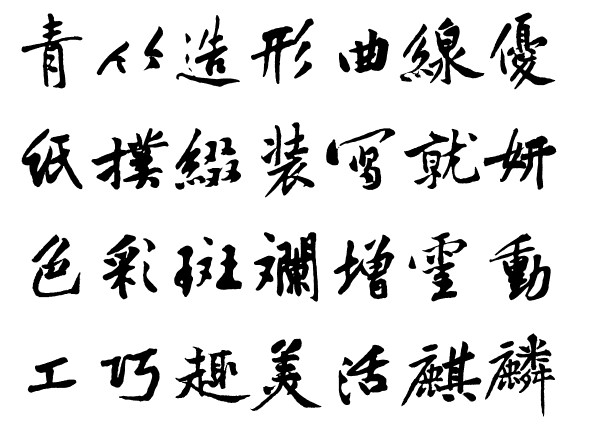 青竹造形曲線優
紙撲綴装写就妍
色彩斑斕增靈動
工巧趣美活麒麟